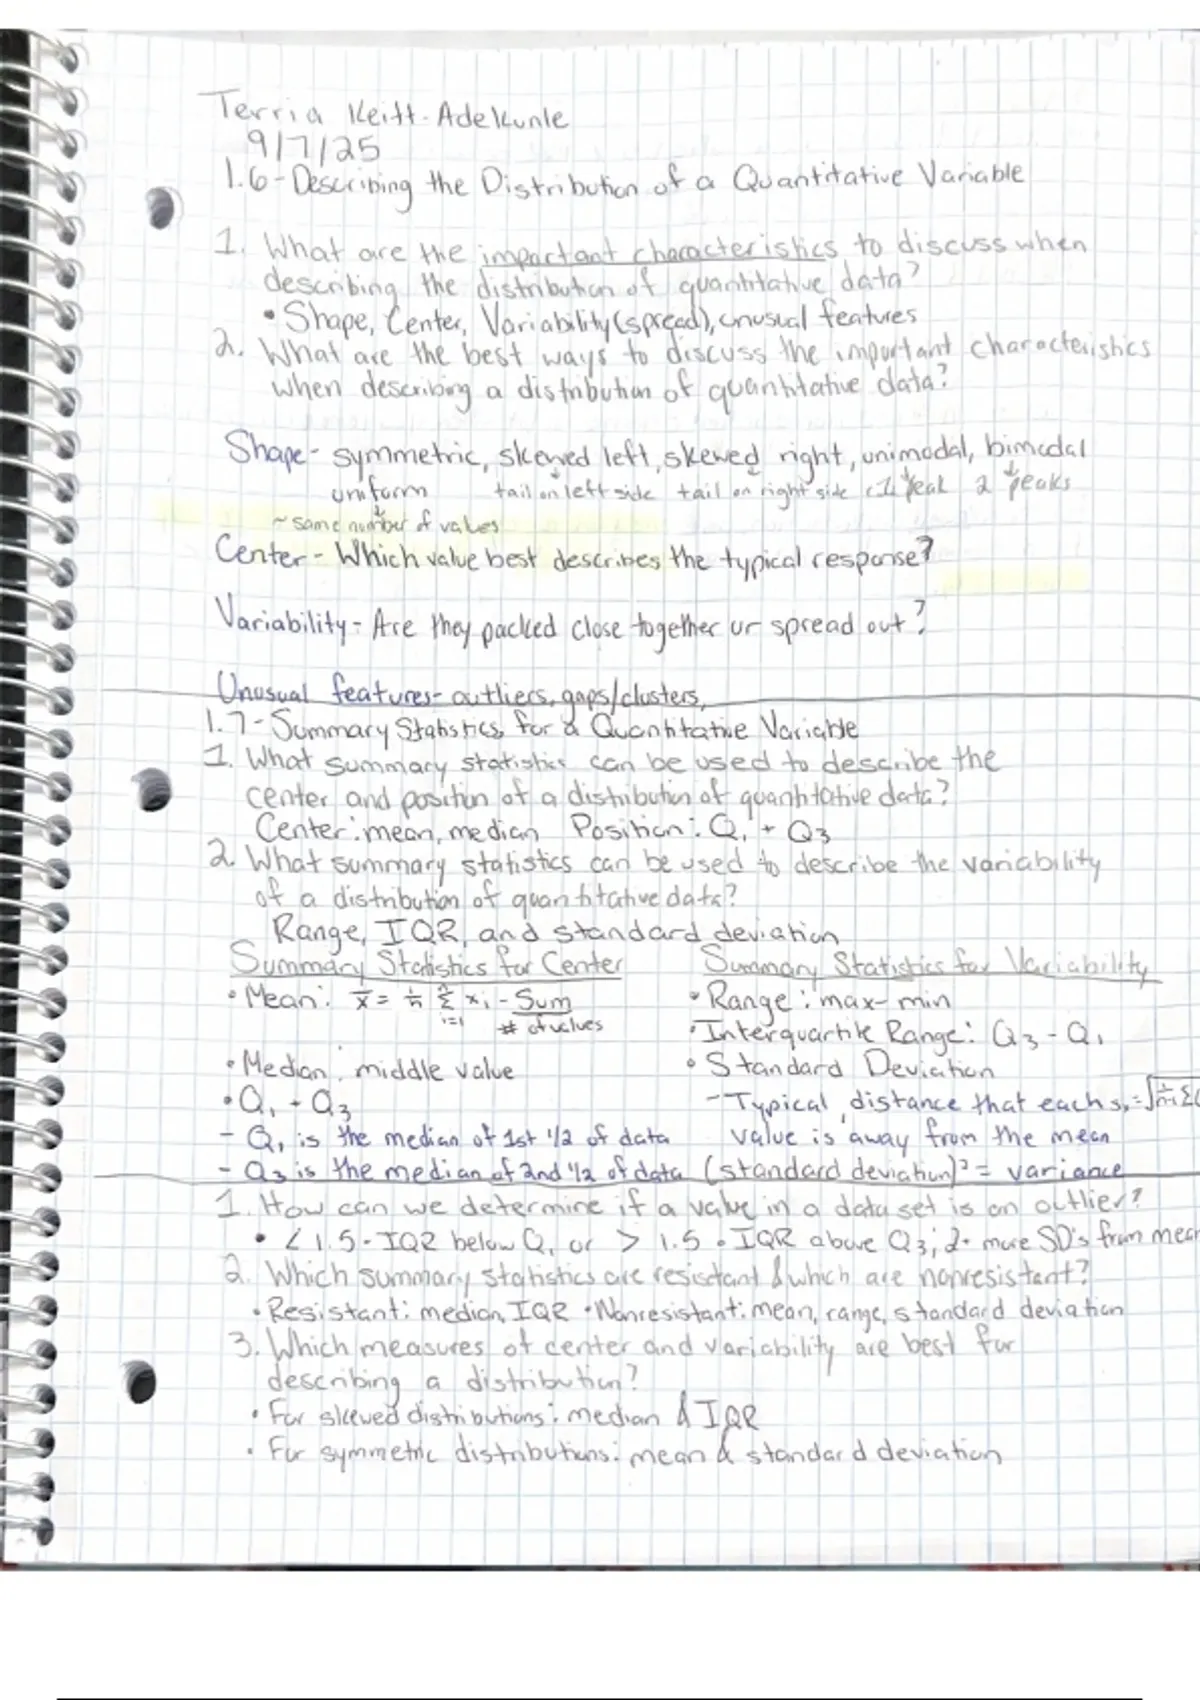 Terria Keitt-Adelkunle
9/7/25
1.6-Describing the Distribution of a Quantitative Variable
1. What are the important characteristics to discuss when
describing the distribution of quantitative data?
• Shape, Center, Variability (spread), unusual features
2. What are the best ways to discuss the important characteristics
when describing a distribution of quantitative data?
Shape- symmetric, skewed left, skewed right, unimodal, bimodal
uniform tail on left side tail on right side 1 peak 2 peaks
~ same number of values
Center- Which value best describes the typical response?
Variability- Are they packed close together or spread out?
Unusual features- outliers, gaps/clusters,
1.7-Summary Statistics for a Quantitative Variable
1. What summary statistics can be used to describe the
center and position of a distribution of quantitative data?
Center: mean, median Position: Q₁ + Q₃
2. What summary statistics can be used to describe the variability
of a distribution of quantitative data?
Range, IQR, and standard deviation
Summary Statistics for Center Summary Statistics for Variability
• Mean: x̄ = 1/n Σ xᵢ - Sum • Range: max-min
i=1 # of values • Interquartile Range: Q₃ - Q₁
• Median: middle value • Standard Deviation
• Q₁ + Q₃ - Typical distance that each sₓ=√1/n-1 Σ(
- Q₁ is the median of 1st 1/2 of data value is away from the mean
- Q₃ is the median of 2nd 1/2 of data (standard deviation)² = variance
1. How can we determine if a value in a data set is an outlier?
• < 1.5 • IQR below Q₁ or > 1.5 • IQR above Q₃; 2+ more SD's from mean
2. Which summary statistics are resisctant & which are nonresistant?
• Resistant: median, IQR • Nonresistant: mean, range, standard deviation
3. Which measures of center and variability are best for
describing a distribution?
• For skewed distributions: median & IQR
• For symmetric distributions: mean & standard deviation